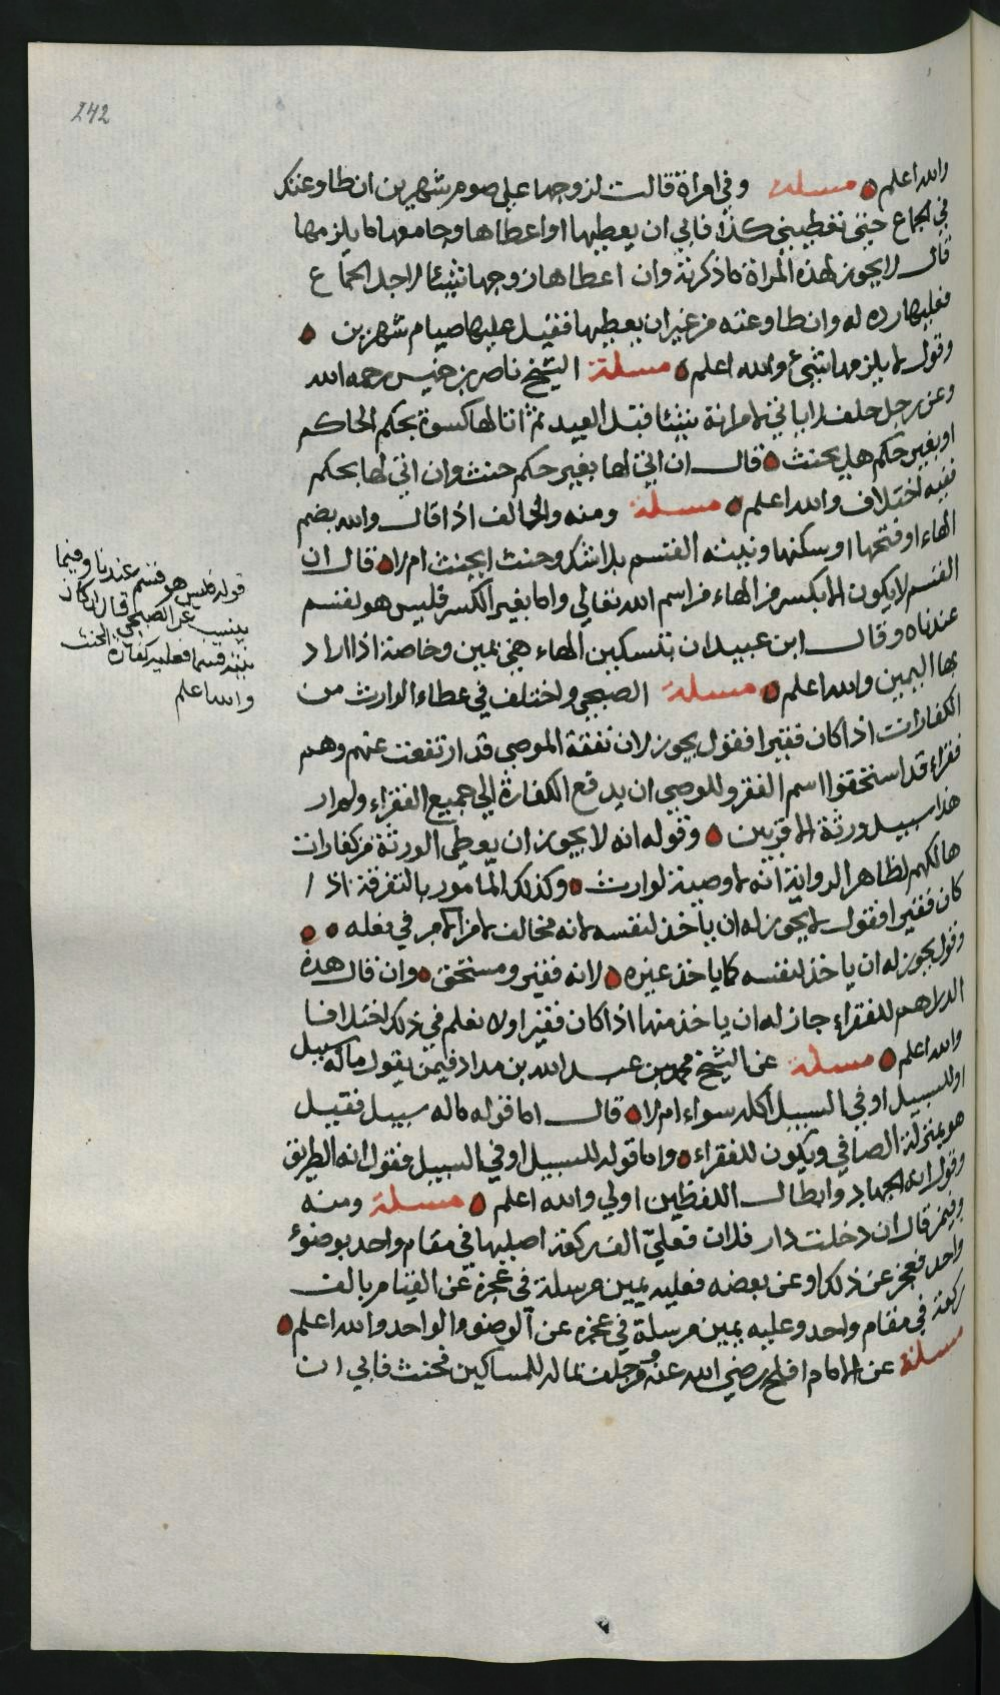 242
والله اعلم مسلة وفي امراة قالت لزوجها علي صوم شهرين ان طاوعتك
في الجماع حتى تعطيني كذا فابي ان يعطيها او اعطاها وجامعها ما يلزمها
قال لا يجوز لهذه المراة ما ذكرته وان اعطاها زوجها شيئا لاجل الجماع
فعليها رده له وان طاوعته من غير ان يعطيها فقيل عليها صيام شهرين
وقول لا يلزمها شيء والله اعلم مسلة الشيخ ناصر بن خميس رحمه الله
وعن رجل حلف لا ياتي لامراته شيئا قبل العيد ثم اتا لها كسوة بحكم الحاكم
او بغير حكم هل يحنث قال ان اتى لها بغير حكم حنث وان اتى لها بحكم
ففيه اختلاف والله اعلم مسلة ومنه والحالف اذا قال والله بضم
الهاء او فتحها او سكنها ونيته القسم بلا شك وحنث ايحنث ام لا قال ان
القسم لا يكون الا بكسر من الهاء من اسم الله تعالي واما بغير الكسر فليس هو بقسم
عندنا وقال ابن عبيدان تسكين الهاء هي يمين وخاصة اذا اراد
بها اليمين والله اعلم مسلة الصبحي واختلف في عطاء الوارث من
الكفارات اذا كان فقيرا فقول يجوز لان نفقة الموصي قد ارتفعت عنهم وهم
فقراء قد استحقوا اسم الفقر وللوصي ان يدفع الكفارة الي جميع الفقراء
هذا سبيل ورثة الاقربين وقوله انه لا يجوز ان يعطي الورثة من كفارات
هالكهم لظاهر الرواية انه لا وصية لوارث وكذلك المامور بالتفرقة اذا
كان فقيرا فقول لا يجوز له ان ياخذ لنفسه لانه مخالف لامر الامر في فعله
وقول يجوز له ان ياخذ لنفسه كما ياخذ غيره لانه فقير ومستحق وان قال هذه
الدراهم للفقراء جاز له ان ياخذ منها اذا كان فقيرا ولا نعلم في ذلك اختلافا
والله اعلم مسلة عن الشيخ محمد بن عبد الله بن مداد فيمن يقول ماله سبيل
او للسبيل او في السبيل اكله سواء ام لا قال اما قوله ماله سبيل فقيل
هو بمنزلة الصافي ويكون للفقراء واما قوله للسبيل او في السبيل فقول انه الطريق
وقول انه الجهاد وابطال اللفظين اولي والله اعلم مسلة ومنه
وفيمن قال ان دخلت دار فلان فعليّ الف ركعة اصليها في مقام واحد بوضوء
واحد فعجز عن ذلك او عن بعضه فعليه يمين مرسلة في عجزه عن القيام بالف
ركعة في مقام واحد وعليه يمين مرسلة في عجزه عن الوضوء الواحد والله اعلم
مسلة عن الامام افلح رضي الله عنه من حلف بماله للمساكين فحنث فابي ان
قوله فليس هو قسم عندنا وفيما
عن الصبحي قال ان كان
قسما فعليه كفارة الحنث
والله اعلم